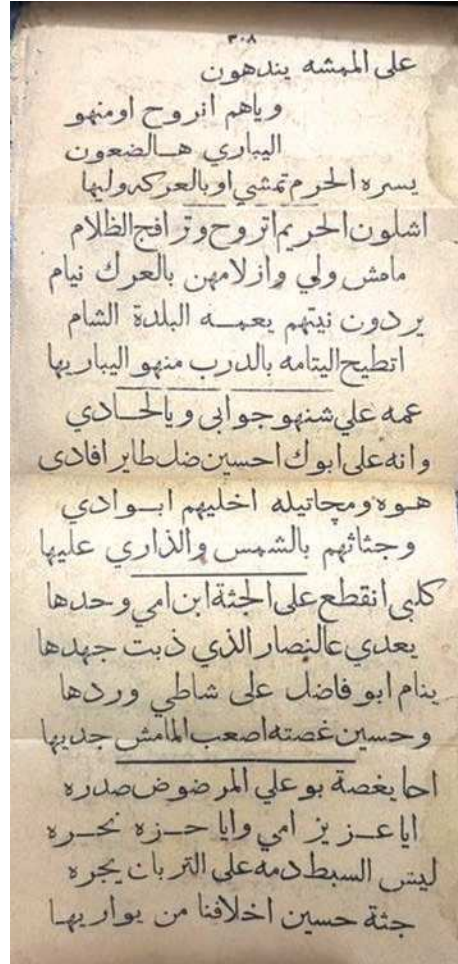 ٣٠٨
على الممشه يندهون
وياهم انروح اومنهو
اليباري هـالضعون
يسره الحرم تمشي اوبالعركه وليها
اشلون الحريم اتروح وترافج الظلام
مامش ولي وازلامهن بالعرك نيام
يردون نيتهم يعمـه البلدة الشام
اتطيح اليتامه بالدرب منهو اليباريها
عمه علي شنهو جوابي ويالحـادي
وانه على ابوك احسين ضل طاير افادى
هـوه ومجاتيله اخليهم ابـوادي
وجثاثهم بالشمس والذاري عليها
كلبي انقطع على الجثة ابن امي وحدها
يعدي عالنصار الذي ذبت جهدها
ينام ابو فاضل على شاطي وردها
وحسين غصته اصعب المامش جديها
احا يغصة بو علي المرضوض صدره
ايا عـزيز امي وايا حـزه نحـره
ليش السبط دمه على التربان يجره
جثة حسين اخلافنا من يواريهـا